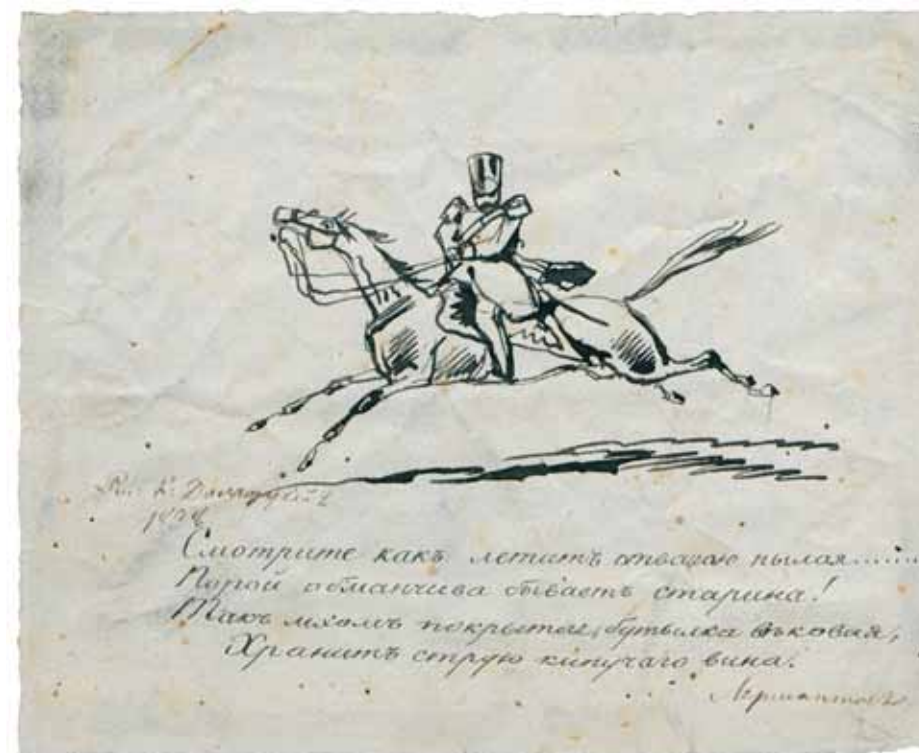 Рис. К.
Смотрите какъ летитъ отвагою пылая......
Порой обманчива бываетъ старина!
Такъ мхомъ покрытая, бутылка вѣковая,
Хранитъ струю кипучаго вина.
Лермонтовъ